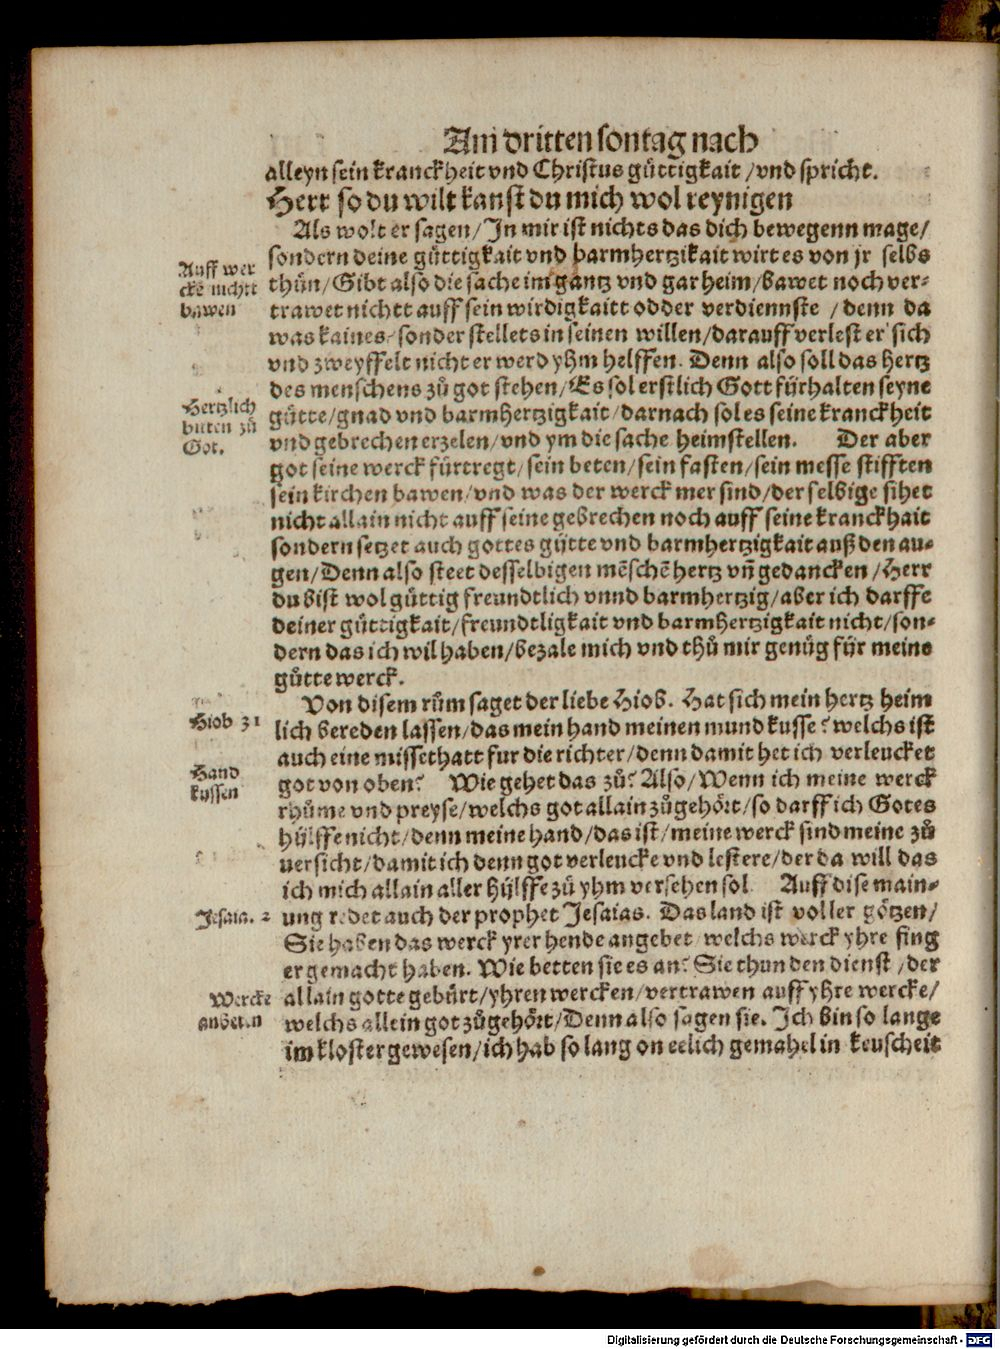 Am dritten sontag nach
alleyn sein kranckheit vnd Christus güttigkait / vnd spricht.
Herr so du wilt kanst du mich wol reynigen
Als wolt er sagen / In mir ist nichts das dich bewegenn mage /
sondern deine güttigkait vnd barmhertzikait wirt es von jr selbs
thün / Gibt also die sache im gantz vnd gar heim / bawet noch ver-
trawet nichtt auff sein wirdigkaitt odder verdiennste / denn da
was kaines / sonder stellets in seinen willen / darauff verlest er sich
vnd zweyffelt nicht er werd yhm helffen. Denn also soll das hertz
des menschens zů got stehen / Es sol erstlich Gott fürhalten seyne
gütte / gnad vnd barmhertzigkait / darnach sol es seine kranckheit
vnd gebrechen erzelen / vnd ym die sache heimstellen. Der aber
got seine werck fürtregt / sein beten / sein fasten / sein messe stifften
sein kirchen bawen / vnd was der werck mer sind / der selbige sihet
nicht allain nicht auff seine gebrechen noch auff seine kranckhait
sondern setzet auch gottes gütte vnd barmhertzigkait auß den au-
gen / Denn also steet desselbigen mẽschẽ hertz vñ gedancken / Herr
du bist wol güttig freundtlich vnnd barmhertzig / aber ich darffe
deiner güttigkait / freundtligkait vnd barmhertzigkait nicht / son-
dern das ich wil haben / bezale mich vnd thů mir genůg für meine
gůtte werck.
Von disem rům saget der liebe Hiob. Hat sich mein hertz heim
lich bereden lassen / das mein hand meinen mund kusse? welchs ist
auch eine missethatt fur die richter / denn damit het ich verleucket
got von oben? Wie gehet das zů? Also / Wenn ich meine werck
rhůme vnd preyse / welchs got allain zůgehört / so darff ich Gotes
hülffe nicht / denn meine hand / das ist / meine werck sind meine zů
uersicht / damit ich denn got verleucke vnd lestere / der da will das
ich mich allain aller hülffe zů yhm versehen sol Auff dise main-
ung redet auch der prophet Jesaias. Das land ist voller götzen /
Sie haben das werck yrer hende angebet / welchs werck yhre fing
er gemacht haben. Wie betten sie es an? Sie thun den dienst / der
allain gotte gebürt / yhren wercken / vertrawen auff yhre wercke /
welchs allein got zůgehört / Denn also sagen sie. Ich bin so lange
im kloster gewesen / ich hab so lang on eelich gemahel in keuscheit
Auff wer
ckẽ nichtt
bawen
Hertzlich
bitten zů
Got.
Hiob 31
Hand
kussen
Jesaia. 2
Wercke
anbeten
Digitalisierung gefördert durch die Deutsche Forschungsgemeinschaft - DFG